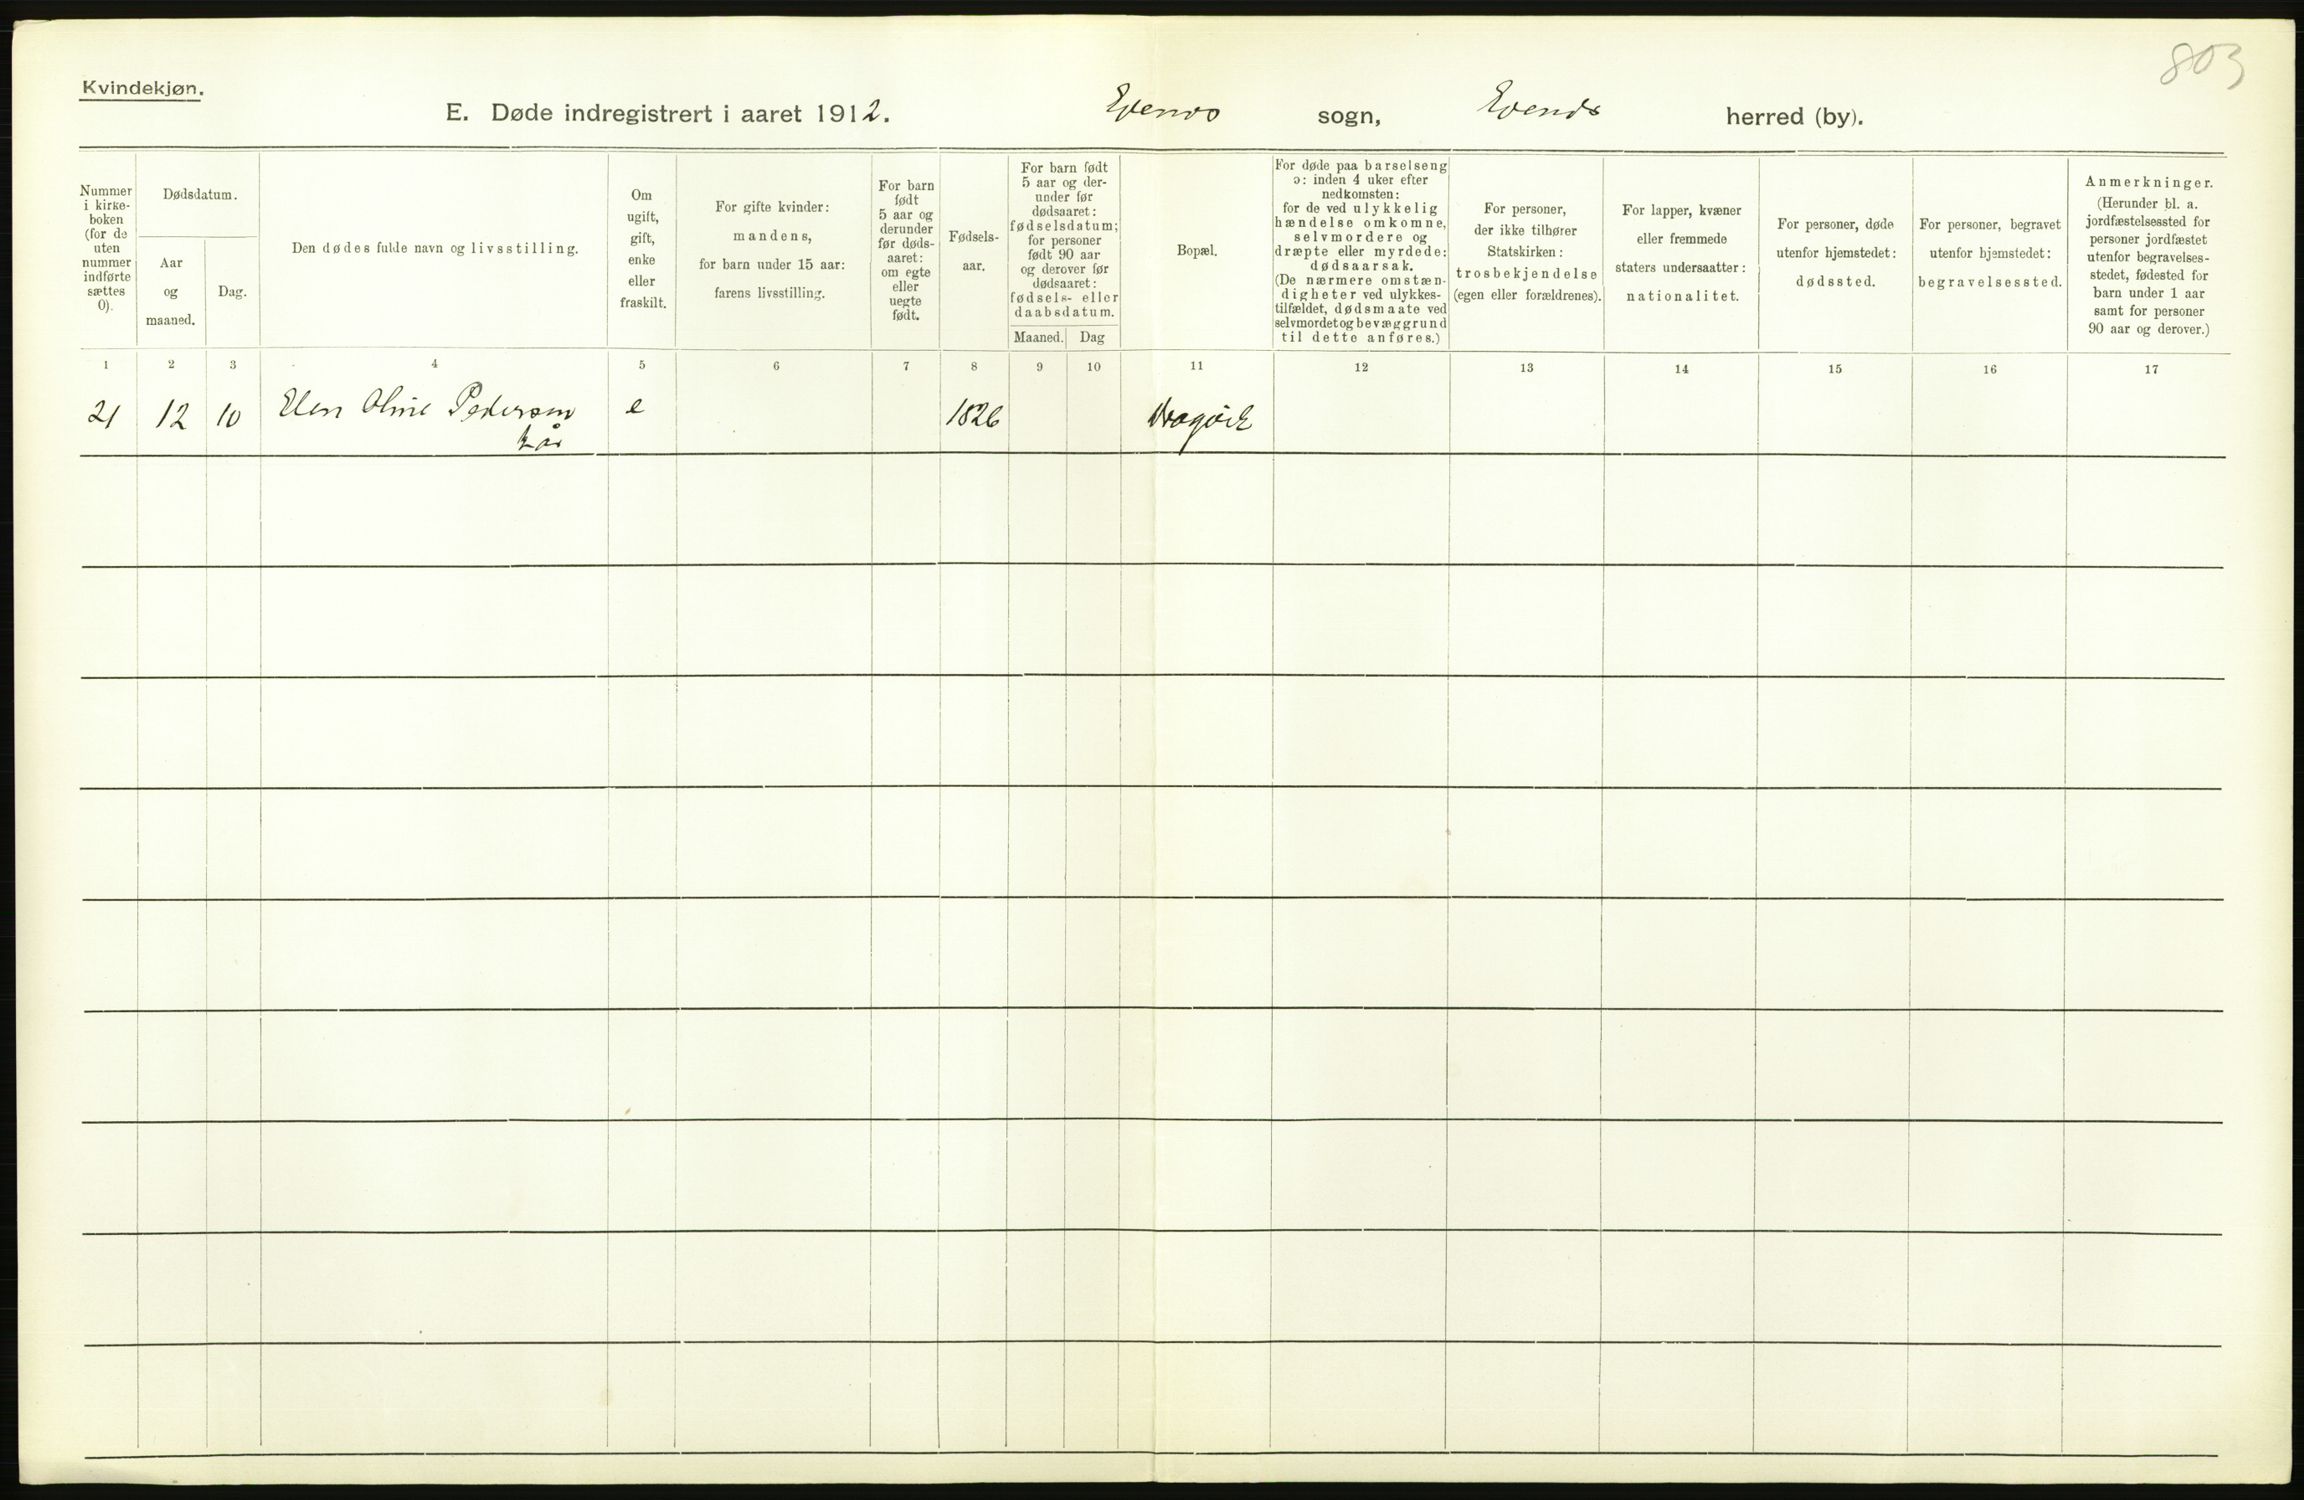 803
Kvindekjøn.
E. Døde indregistrert i aaret 1912. Evenes sogn, Evenes herred (by).
Nummer
i kirke-
boken
(for de
uten
nummer
indførte
sættes
0).
Dødsdatum.
Aar
og
maaned.
Dag.
Den dødes fulde navn og livsstilling.
Om
ugift,
gift,
enke
eller
fraskilt.
For gifte kvinder:
mandens,
for barn under 15 aar:
farens livsstilling.
For barn
født
5 aar og
derunder
før døds-
aaret:
om egte
eller
uegte
født.
Fødsels-
aar.
For barn født
5 aar og der-
under før
dødsaaret:
fødselsdatum;
for personer
født 90 aar
og derover før
dødsaaret:
fødsels- eller
daabsdatum.
Maaned. Dag
Bopæl.
For døde paa barselseng
ɔ: inden 4 uker efter
nedkomsten:
for de ved ulykkelig
hændelse omkomne,
selvmordere og
dræpte eller myrdede:
dødsaarsak.
(De nærmere omstæn-
digheter ved ulykkes-
tilfældet, dødsmaate ved
selvmordet og bevæggrund
til dette anføres.)
For personer,
der ikke tilhører
Statskirken:
trosbekjendelse
(egen eller forældrenes).
For lapper, kvæner
eller fremmede
staters undersaatter:
nationalitet.
For personer, døde
utenfor hjemstedet:
dødssted.
For personer, begravet
utenfor hjemstedet:
begravelsessted.
Anmerkninger.
(Herunder bl. a.
jordfæstelsessted for
personer jordfæstet
utenfor begravelses-
stedet, fødested for
barn under 1 aar
samt for personer
90 aar og derover.)
1 2 3 4 5 6 7 8 9 10 11 12 13 14 15 16 17
21 12 10 Elen Oline Pedersen e 1826 Dragvik
kår